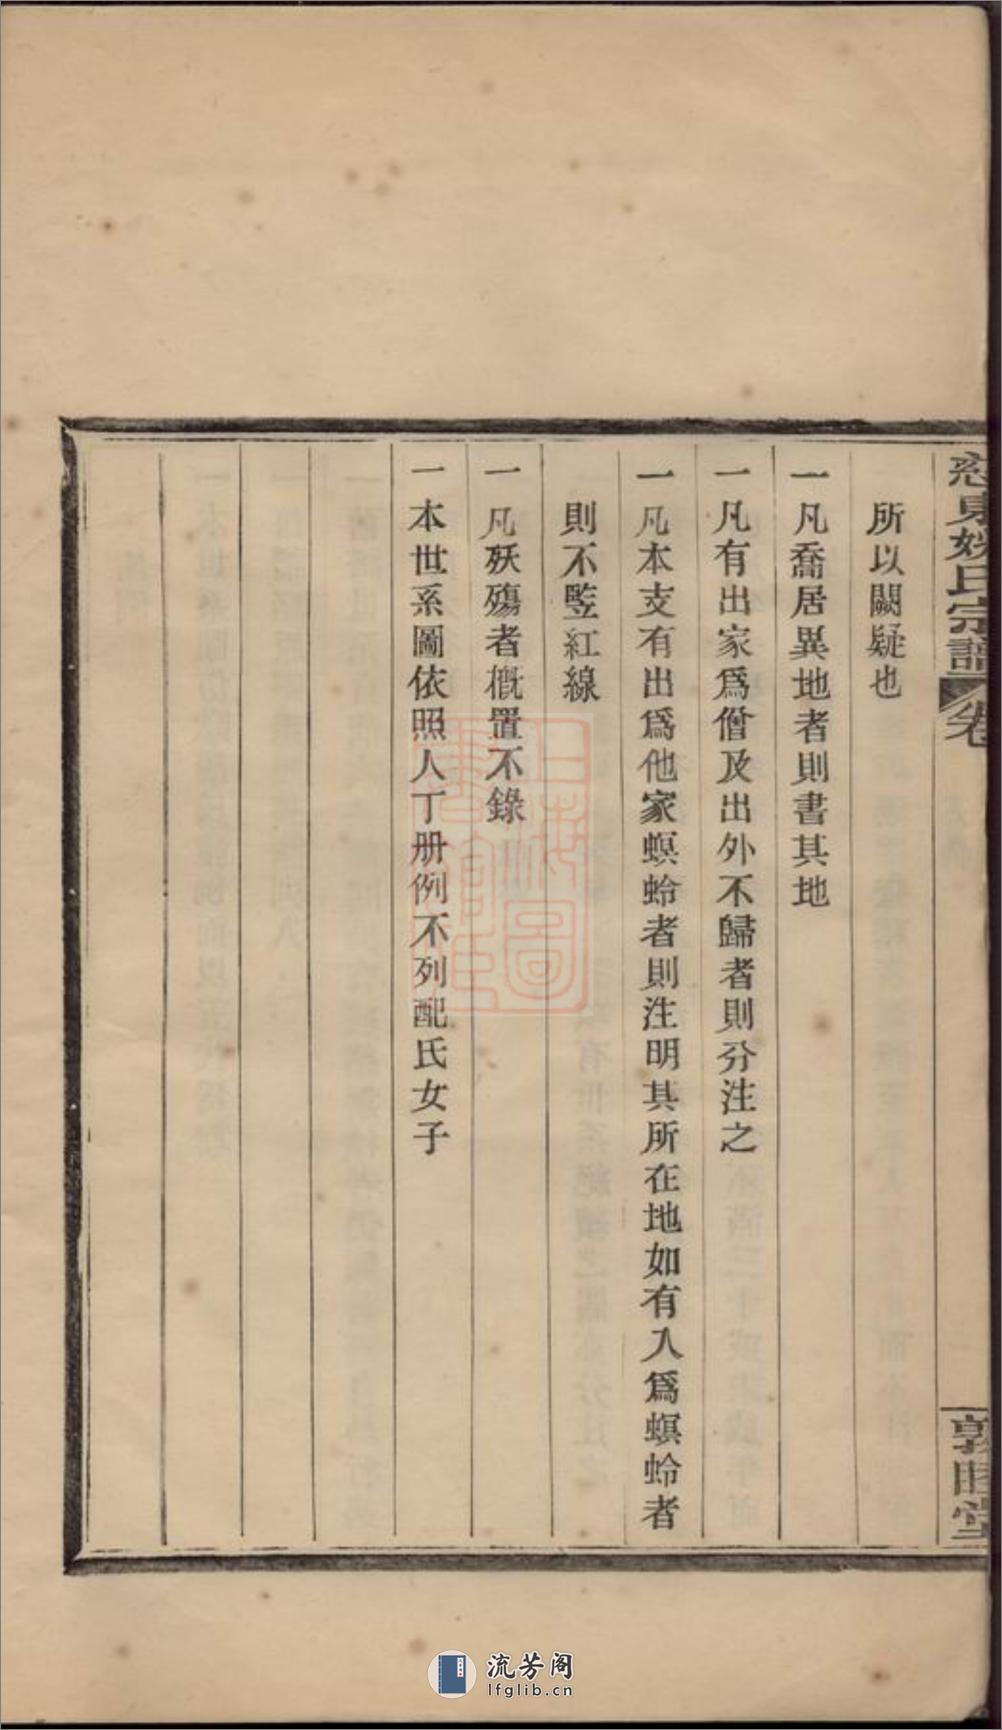 慈東姚氏宗譜 卷
敦睦堂
所以闕疑也
一凡喬居異地者則書其地
一凡有出家爲僧及出外不歸者則分注之
一凡本支有出爲他家螟蛉者則注明其所在地如有入爲螟蛉者
則不竪紅線
一凡殀殤者槪置不錄
一本世系圖依照人丁册例不列配氏女子
流芳阁
lfglib.cn